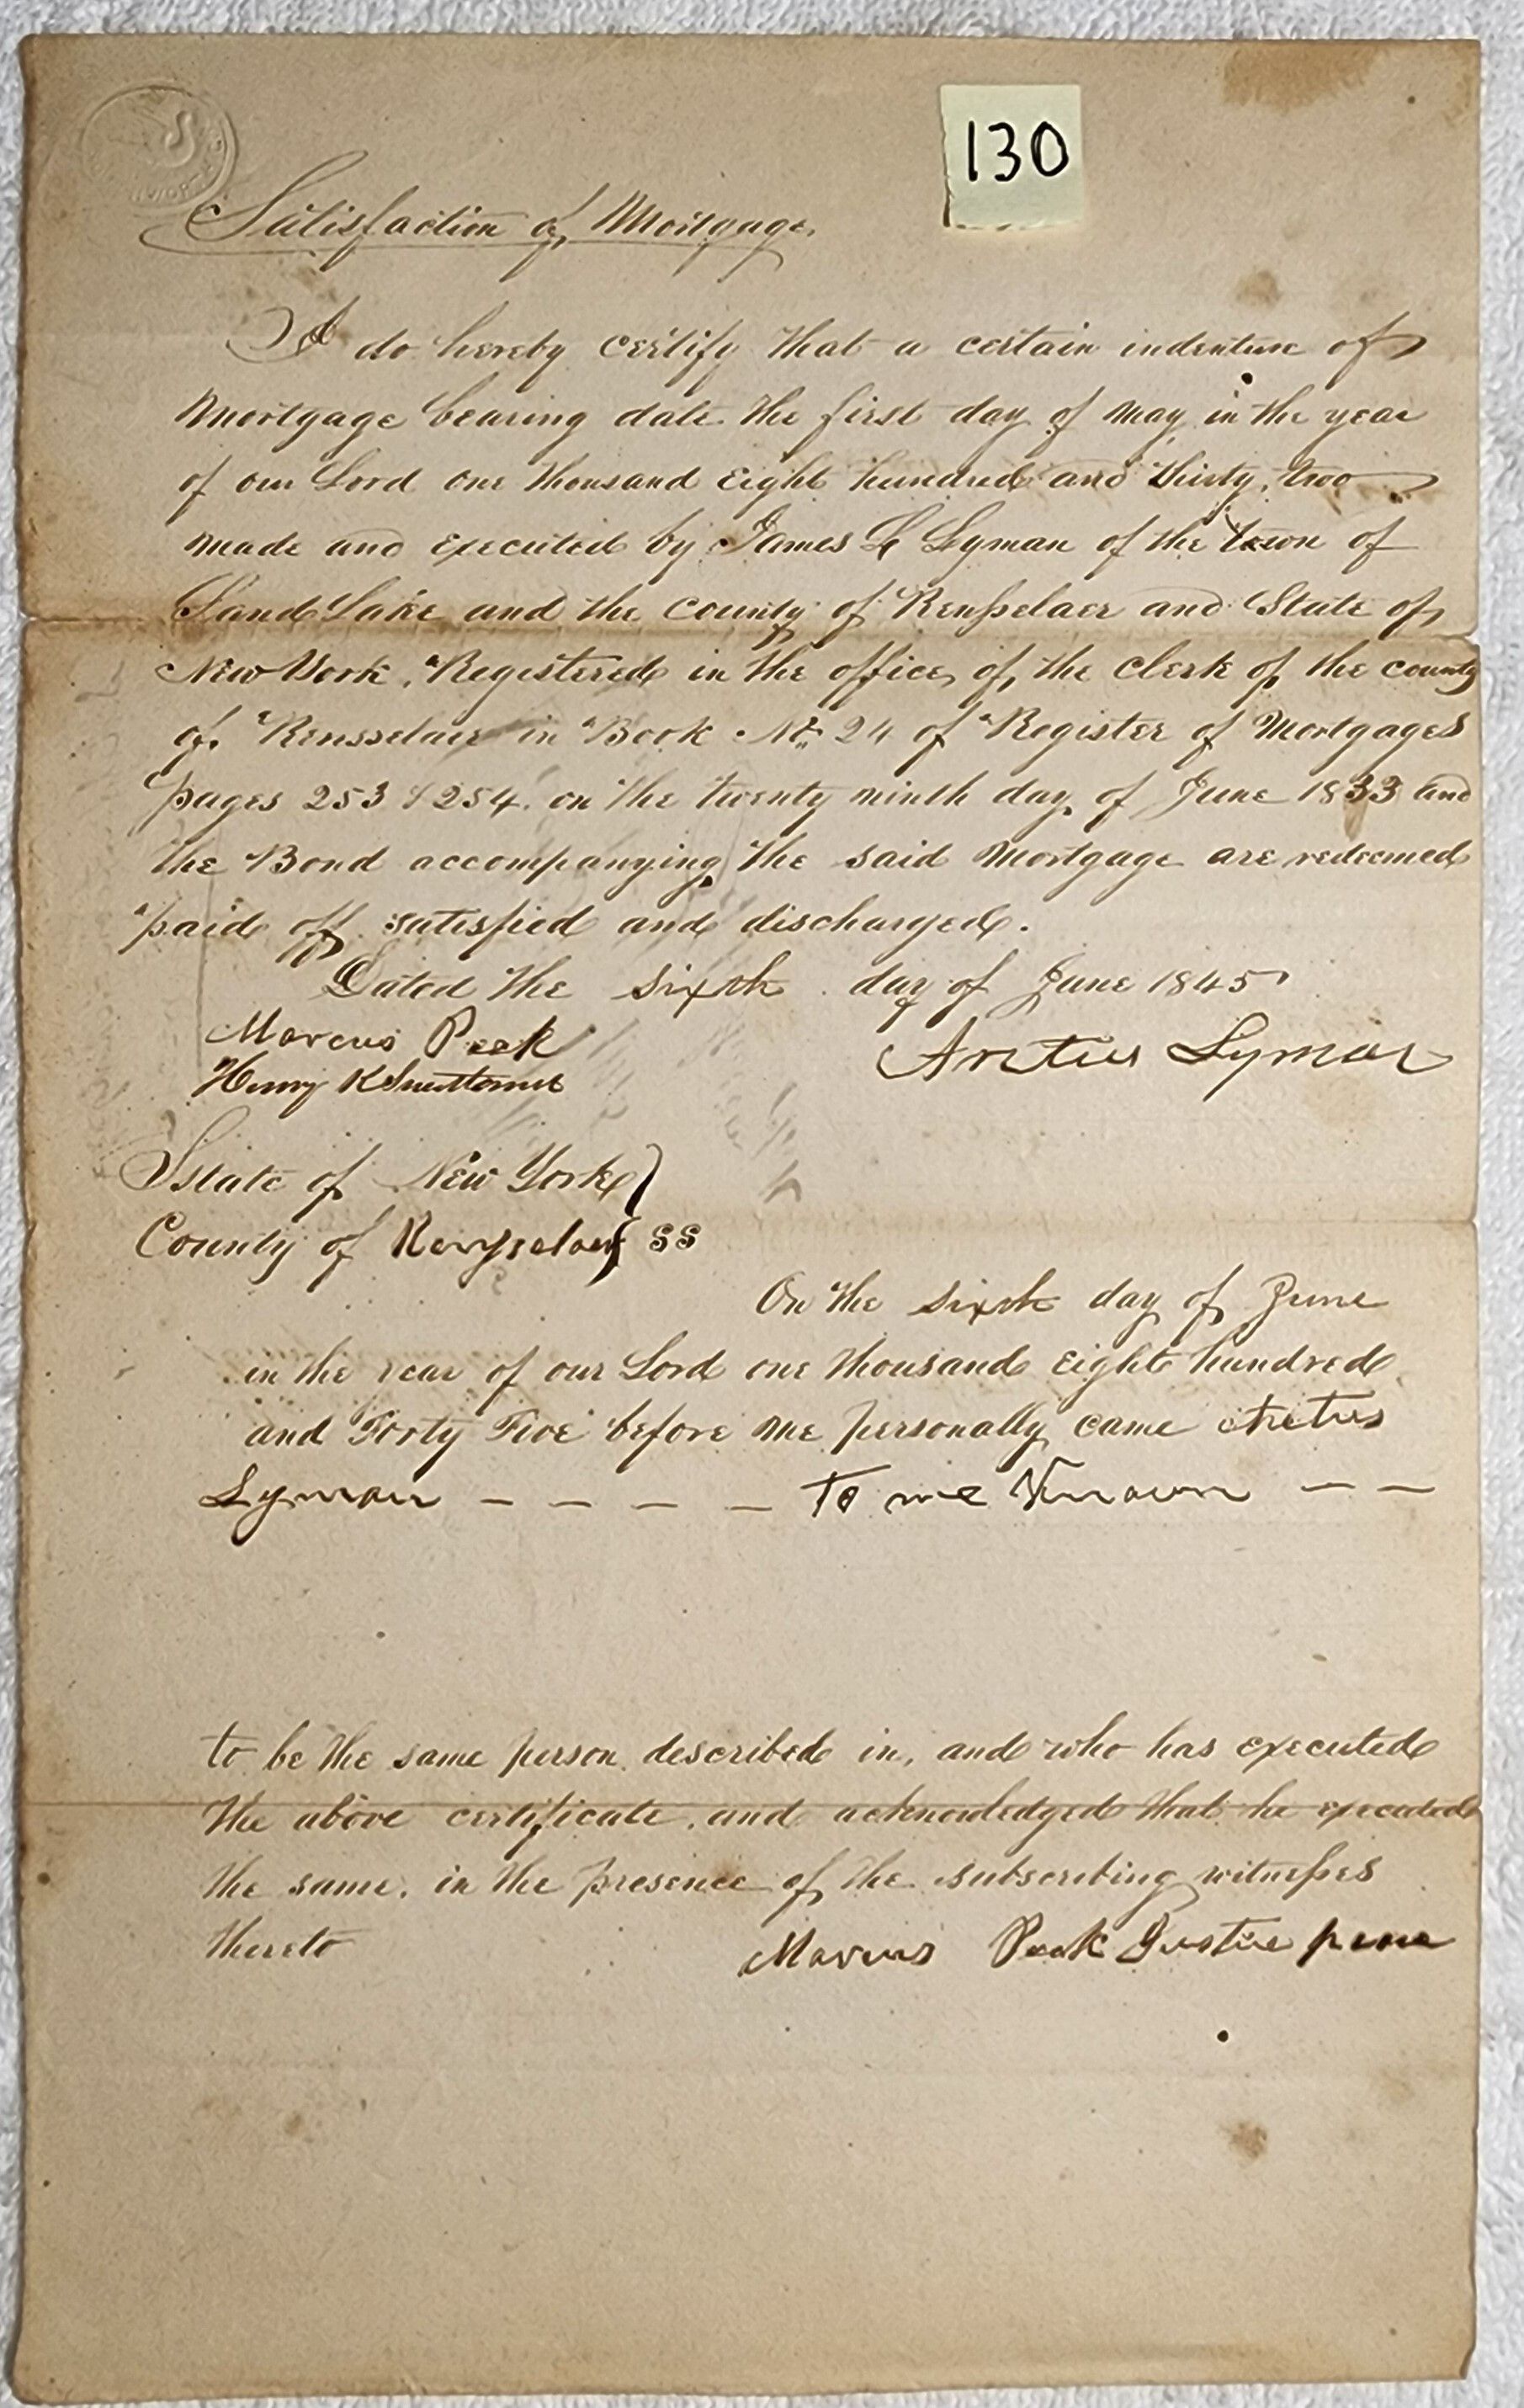 130
Satisfaction of Mortgage.
I do hereby certify that a certain indenture of
Mortgage bearing date the first day of May in the year
of our Lord one thousand Eight hundred and thirty two
made and executed by James L Lyman of the town of
Sand Lake and the county of Renſselaer and State of
New York. Registered in the office of the clerk of the county
of Rensselaer in Book No. 24 of Register of Mortgages
pages 253 & 254 on the twenty ninth day of June 1833 and
the Bond accompanying the said Mortgage are redeemed
paid off satisfied and discharged.
Dated the sixth day of June 1845
Marcus Peek
Aretus Lyman
Henry K
State of New York
County of Renſselaer SS
On the sixth day of June
in the year of our Lord one thousand Eight hundred
and Forty Five before me personally came Aretus
Lyman - - - - To me Known - -
to be the same person described in, and who has executed
the above certificate, and acknowledged that he executed
the same, in the presence of the subscribing witneſses
thereto
Marcus Peek Justice peace